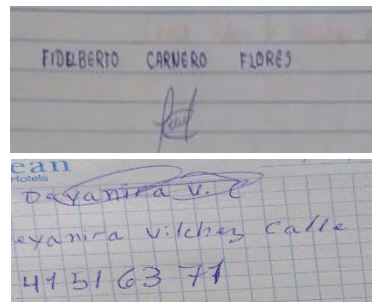 FIDELBERTO CARNERO FLORES
ean
Hotels
Dayanira V. C
eyanira Vilchez Calle
41516371